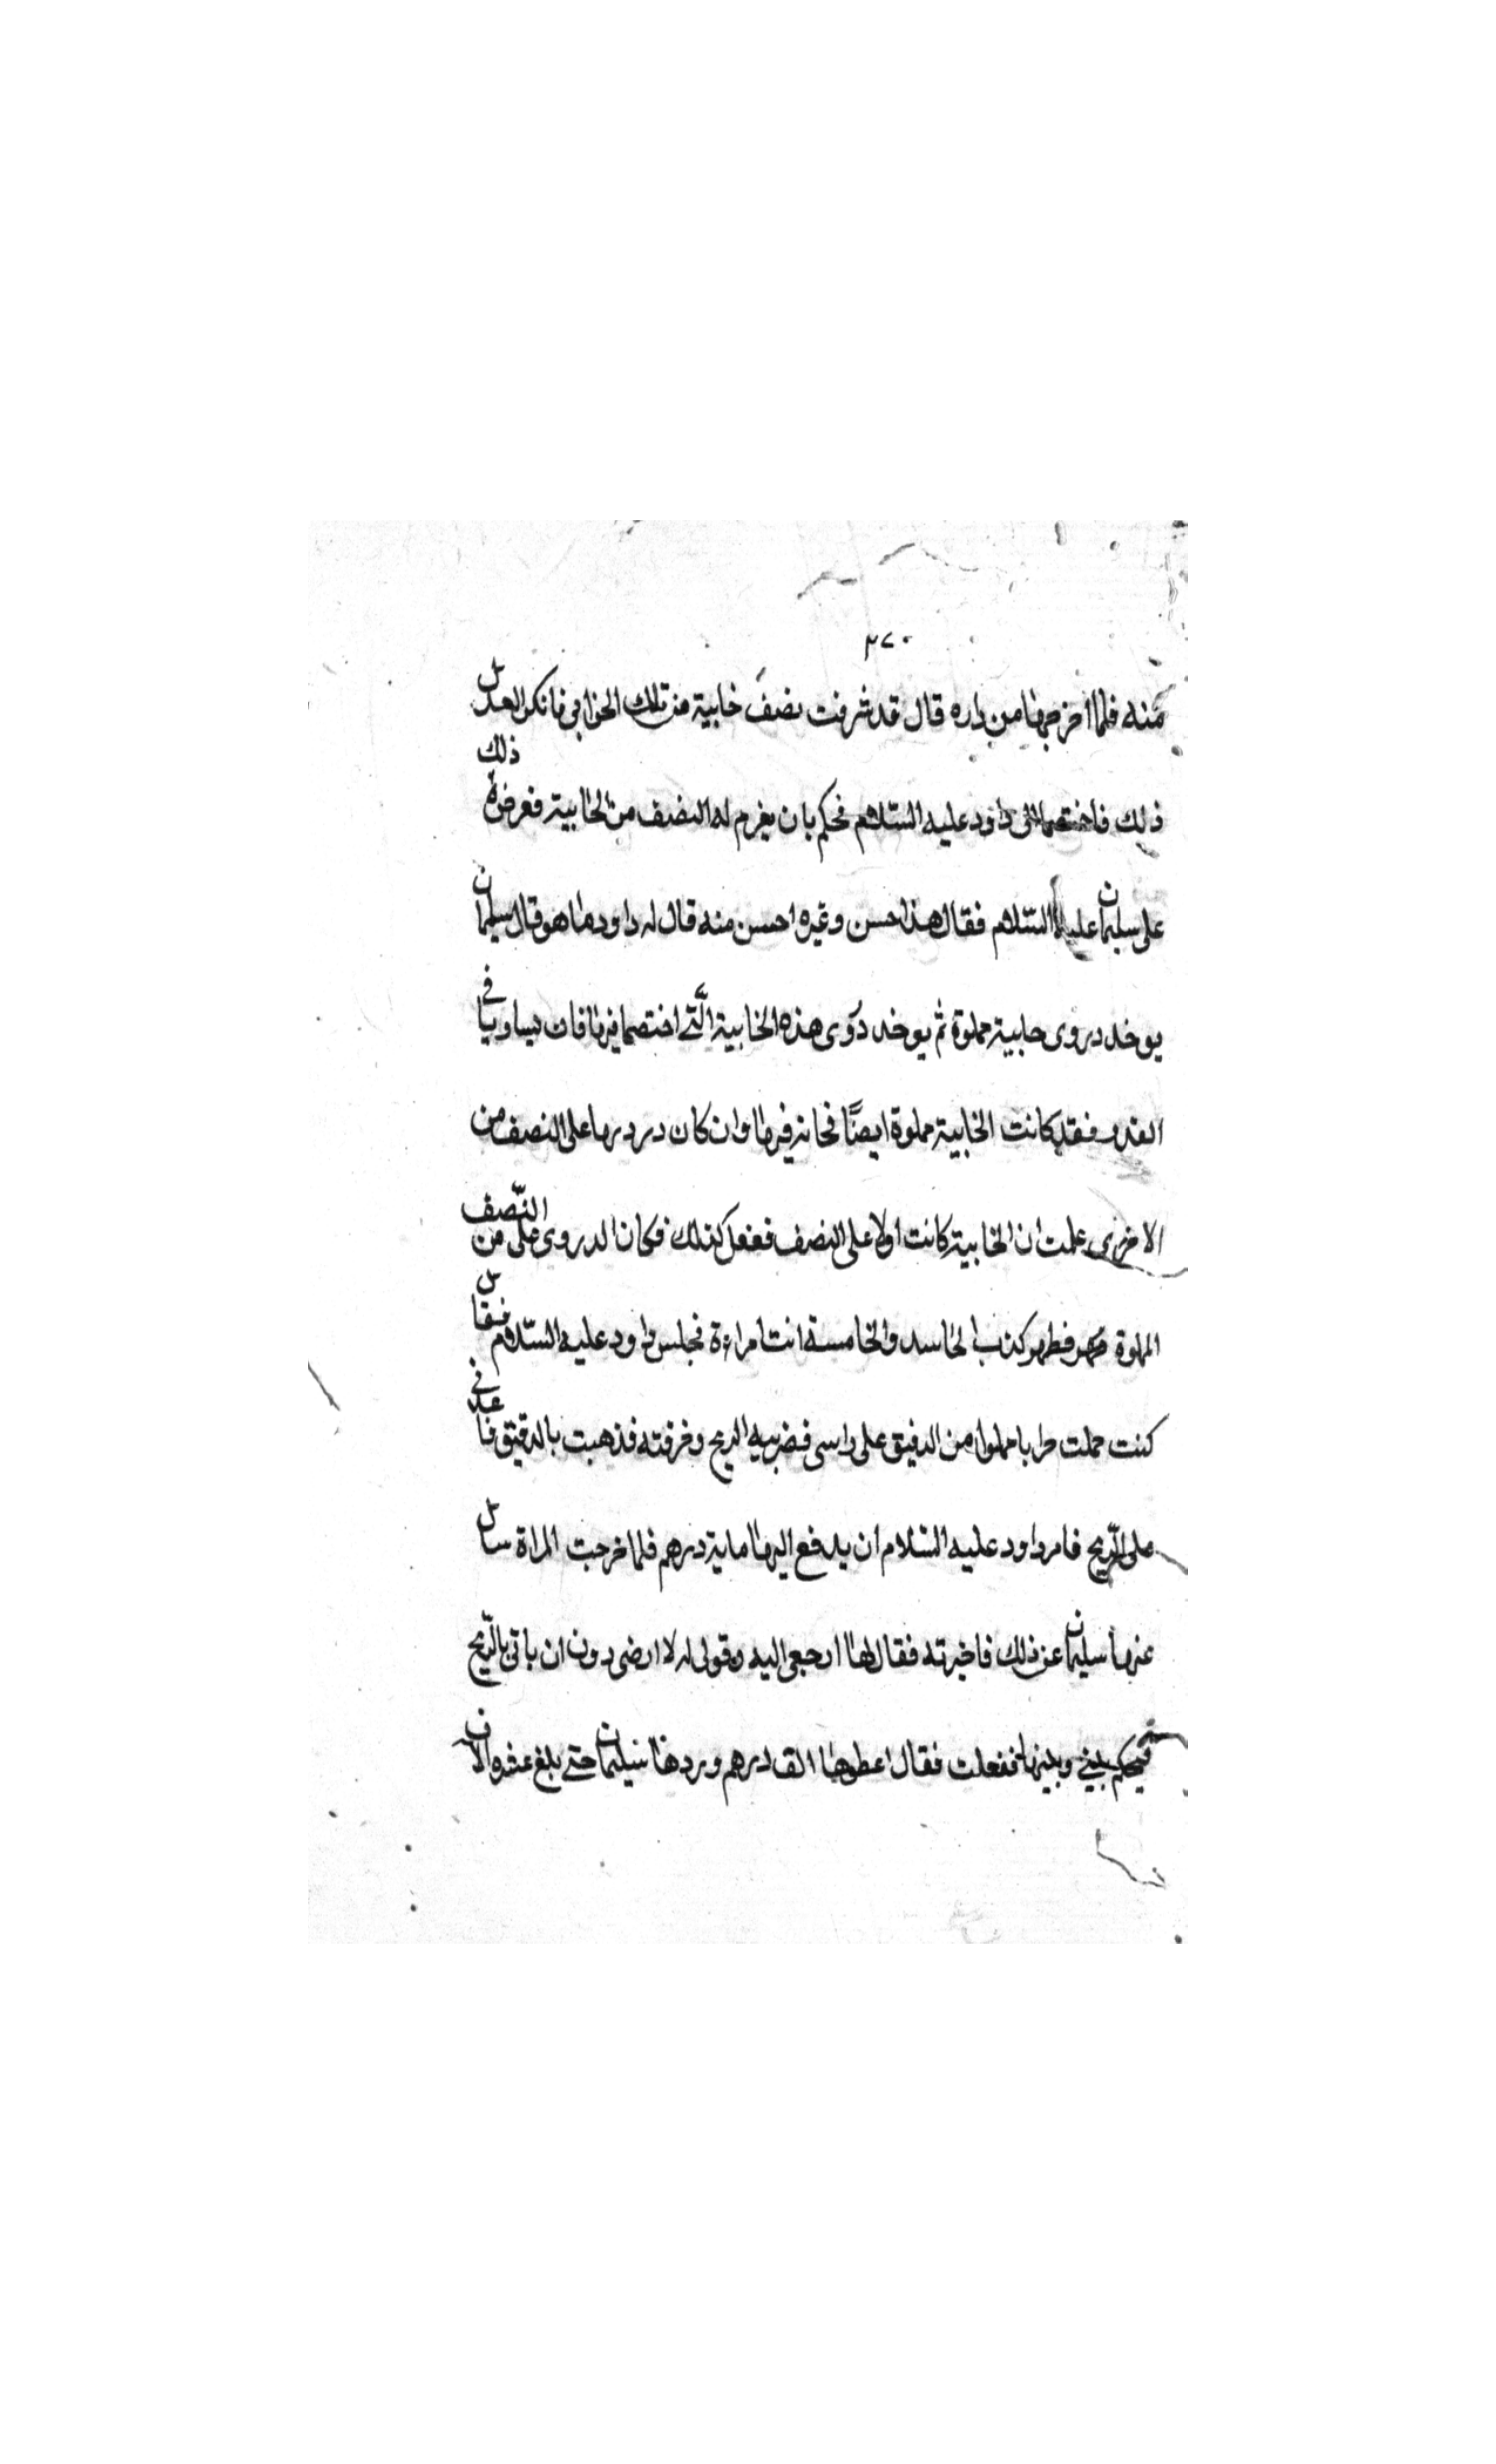 ٢٧٠
منه فلما اخرجها من داره قال قد شرفت نصف خابية من تلك الخوابى فانكر العدل
ذلك فاختصما الى داود عليه السلام فحكم بان يغرم له النصف من الخابية فعرض ذلك
على سليمان عليه السلام فقال هذا حسن وغيره احسن منه قال له داود ما هو قال سليمان
يوخد دروى خابية مملوة ثم يوخد دروى هذه الخابية الّتى اختصما فيها فان تساويا فى
فقد كانت الخابية مملوة ايضًا فخانه فيها وان كان درديها على النصف من
الاخرى علمت ان الخابية كانت اولا على النصف ففعل كذلك فكان الدروى على النّصف من
المملوة فظهر كذب الحاسد والخامسة اتت امراءة مجلس داود عليه السّلام فقال
كنت حملت جرابا مملوا من الدقيق على راسى فضربيه الريح وخرقته فذهبت بالدقيق فاعدنى
على الرّيح فامر داود عليه السّلام ان يدفع اليها ماية درهم فلما خرجت المراة سال
عنها سليمان عن ذلك فاخبرته فقال لها ارجعى اليه وقولى له لا ارضى دون ان ياتى بالرّيح
فيحكم بينى وبينها ففعلت فقال اعطوها الف درهم وردها سليمان حتى بلغ عشرة الاف